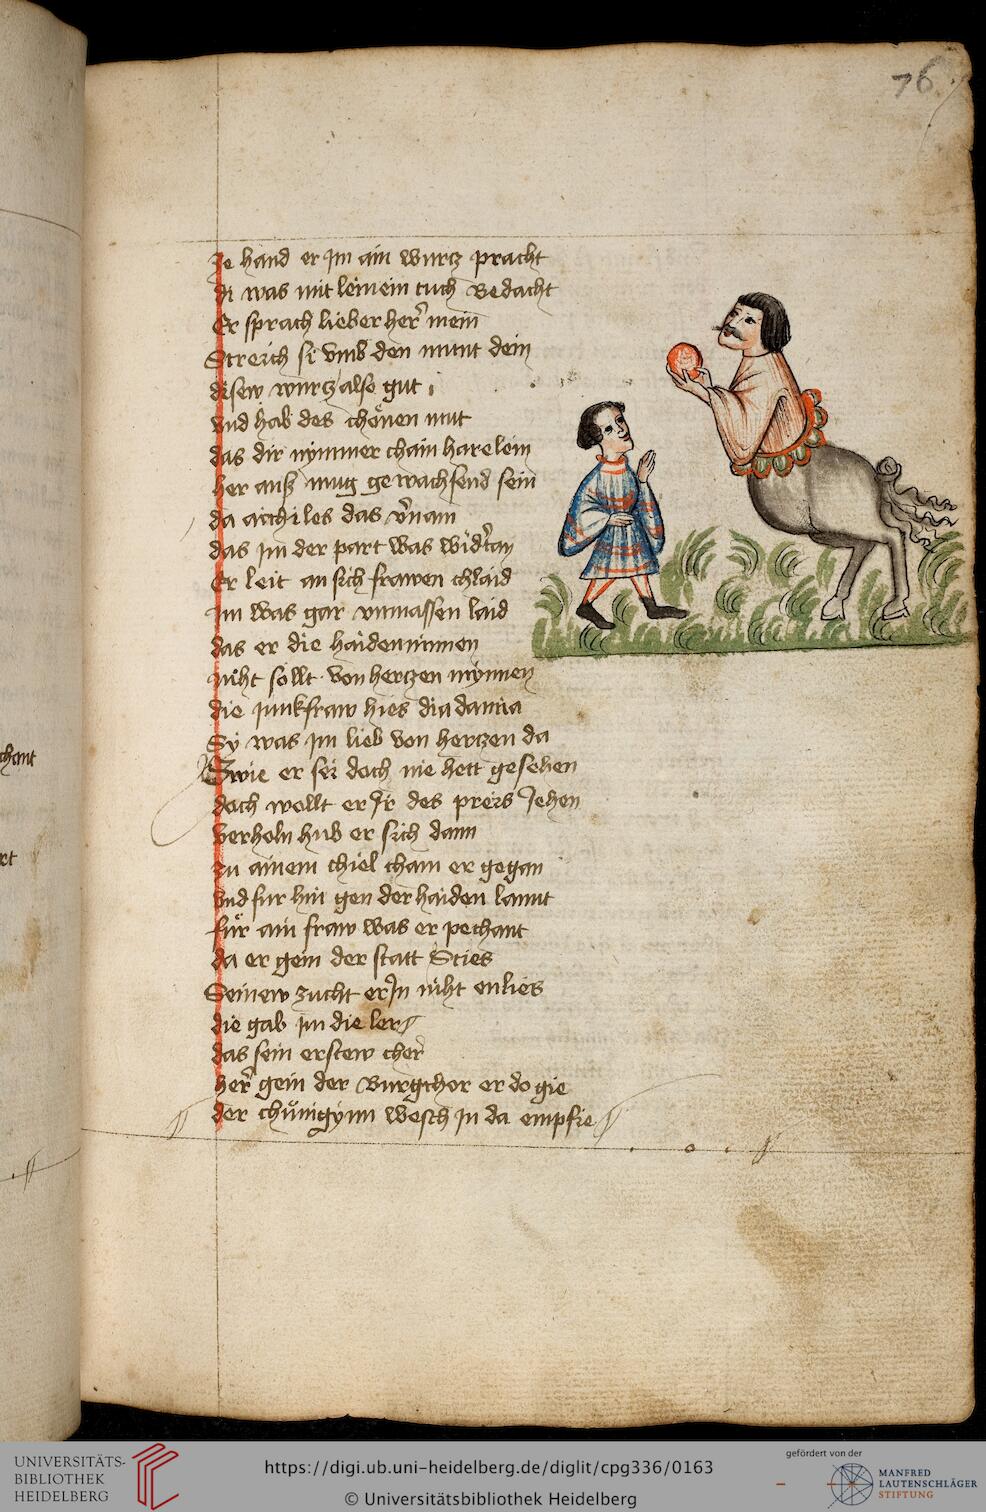 76
ze hand er jm ain wurcz pracht
di was mit leinein tuch bedacht
Er sprach lieber her̃ mein
Streich si vmb den munt dein
disew wurcz also gut
vnd hab des chönen mut
das dir nymmer chain harelein
her auß mug gewachsend sein
da acchiles das v̉nam
das jm der part was wid̉tan
Er leit an sich frawen chlaid
jm was gar vnmassen laid
das er die haideninnen
nicht sollt von hertzen mynnen
die junkfraw hies diadamia
Sy was jm lieb von hertzen da
Swie er sei doch nie hett gesehen
doch wollt er Jr des preis Jehen
verholn hub er sich dann
zu ainem chiel cham er gegan
vnd fur hin gen der haiden lannt
für ain fraw was er pechant
da er gein der statt Sties
Seinew zucht er Jn nicht enlies
die gab jm die ler
das sein erstew cher̃
her̃ gein der Burgthor er do gie
der chünigynn wesch jn da empfie
chant
rt
UNIVERSITÄTS-
BIBLIOTHEK
HEIDELBERG
https://digi.ub.uni-heidelberg.de/diglit/cpg336/0163
© Universitätsbibliothek Heidelberg
gefördert von der
MANFRED
LAUTENSCHLÄGER
STIFTUNG